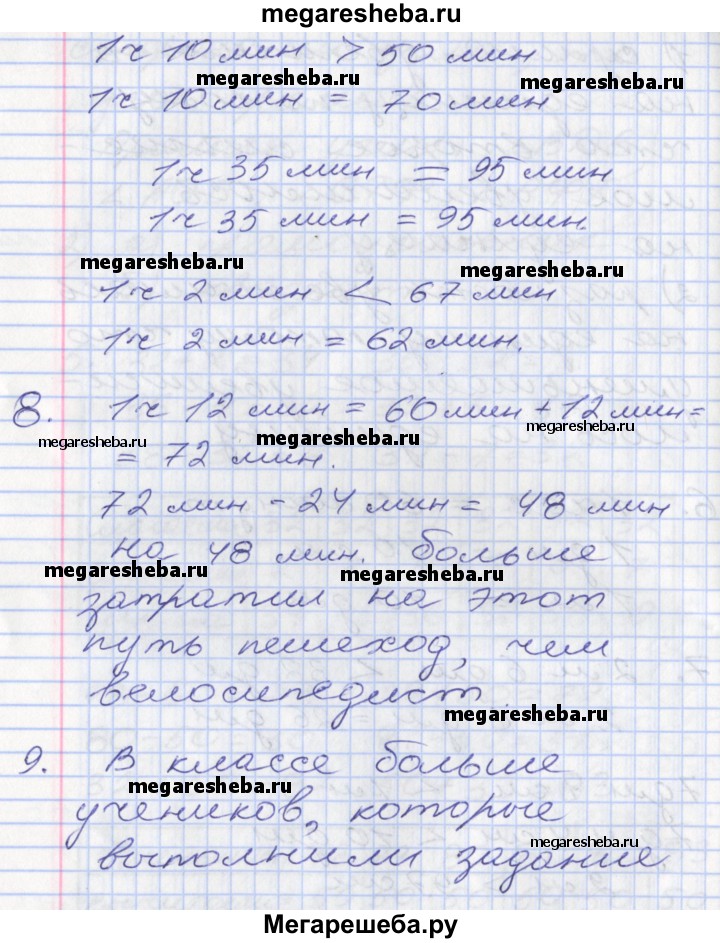 megaresheba.ru
1ч 10 мин > 50 мин
megaresheba.ru megaresheba.ru
1ч 10 мин = 70 мин
1ч 35 мин = 95 мин
1ч 35 мин = 95 мин.
megaresheba.ru megaresheba.ru
1ч 2 мин < 67 мин
1ч 2 мин = 62 мин.
8. 1ч 12 мин = 60 мин + 12 мин =
megaresheba.ru megaresheba.ru megaresheba.ru
= 72 мин.
72 мин - 24 мин = 48 мин
на 48 мин. больше
megaresheba.ru megaresheba.ru
затратил на этот
путь пешеход, чем
велосипедист
megaresheba.ru
9. В классе больше
megaresheba.ru
учеников, которые
megaresheba.ru
выполнили задание
Мегарешеба.ру